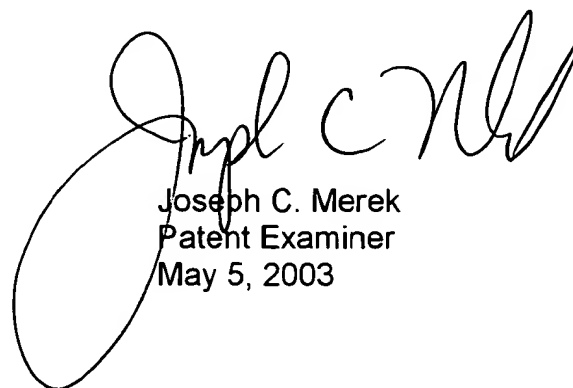 Joseph C. Merek
Patent Examiner
May 5, 2003